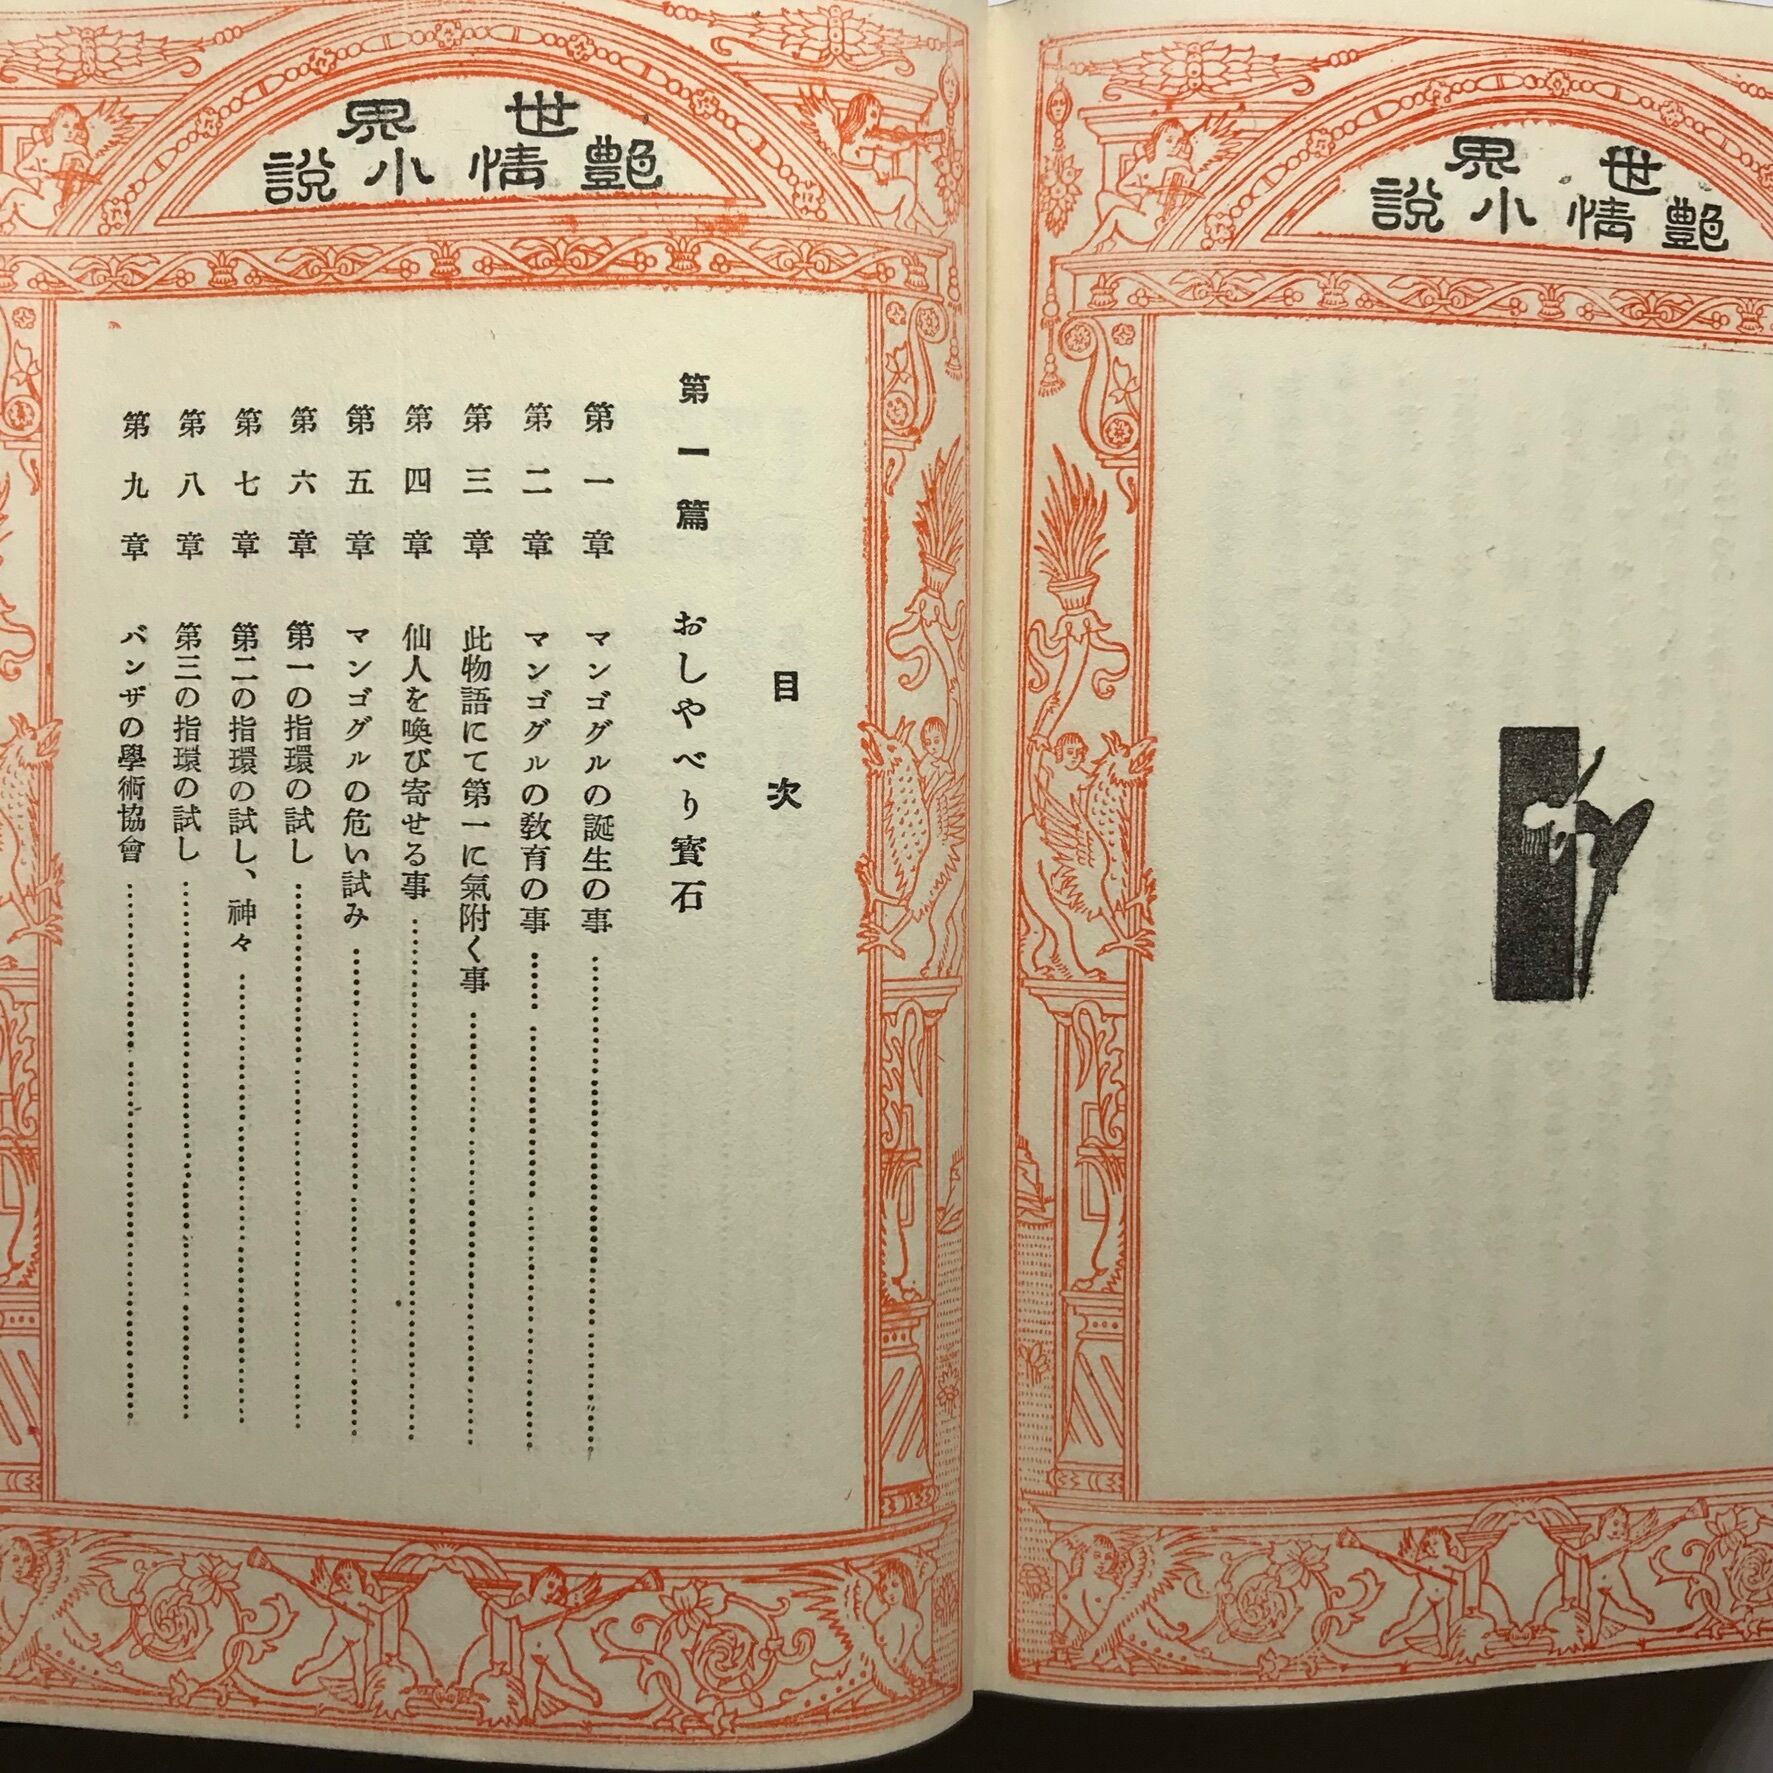 世界
艶情小說
世界
艶情小說
目次
第一篇 おしやべり寶石
第一章 マンゴグルの誕生の事
第二章 マンゴグルの敎育の事
第三章 此物語にて第一に氣附く事
第四章 仙人を喚び寄せる事
第五章 マンゴグルの危い試み
第六章 第一の指環の試し
第七章 第二の指環の試し、神々
第八章 第三の指環の試し
第九章 バンザの學術協會